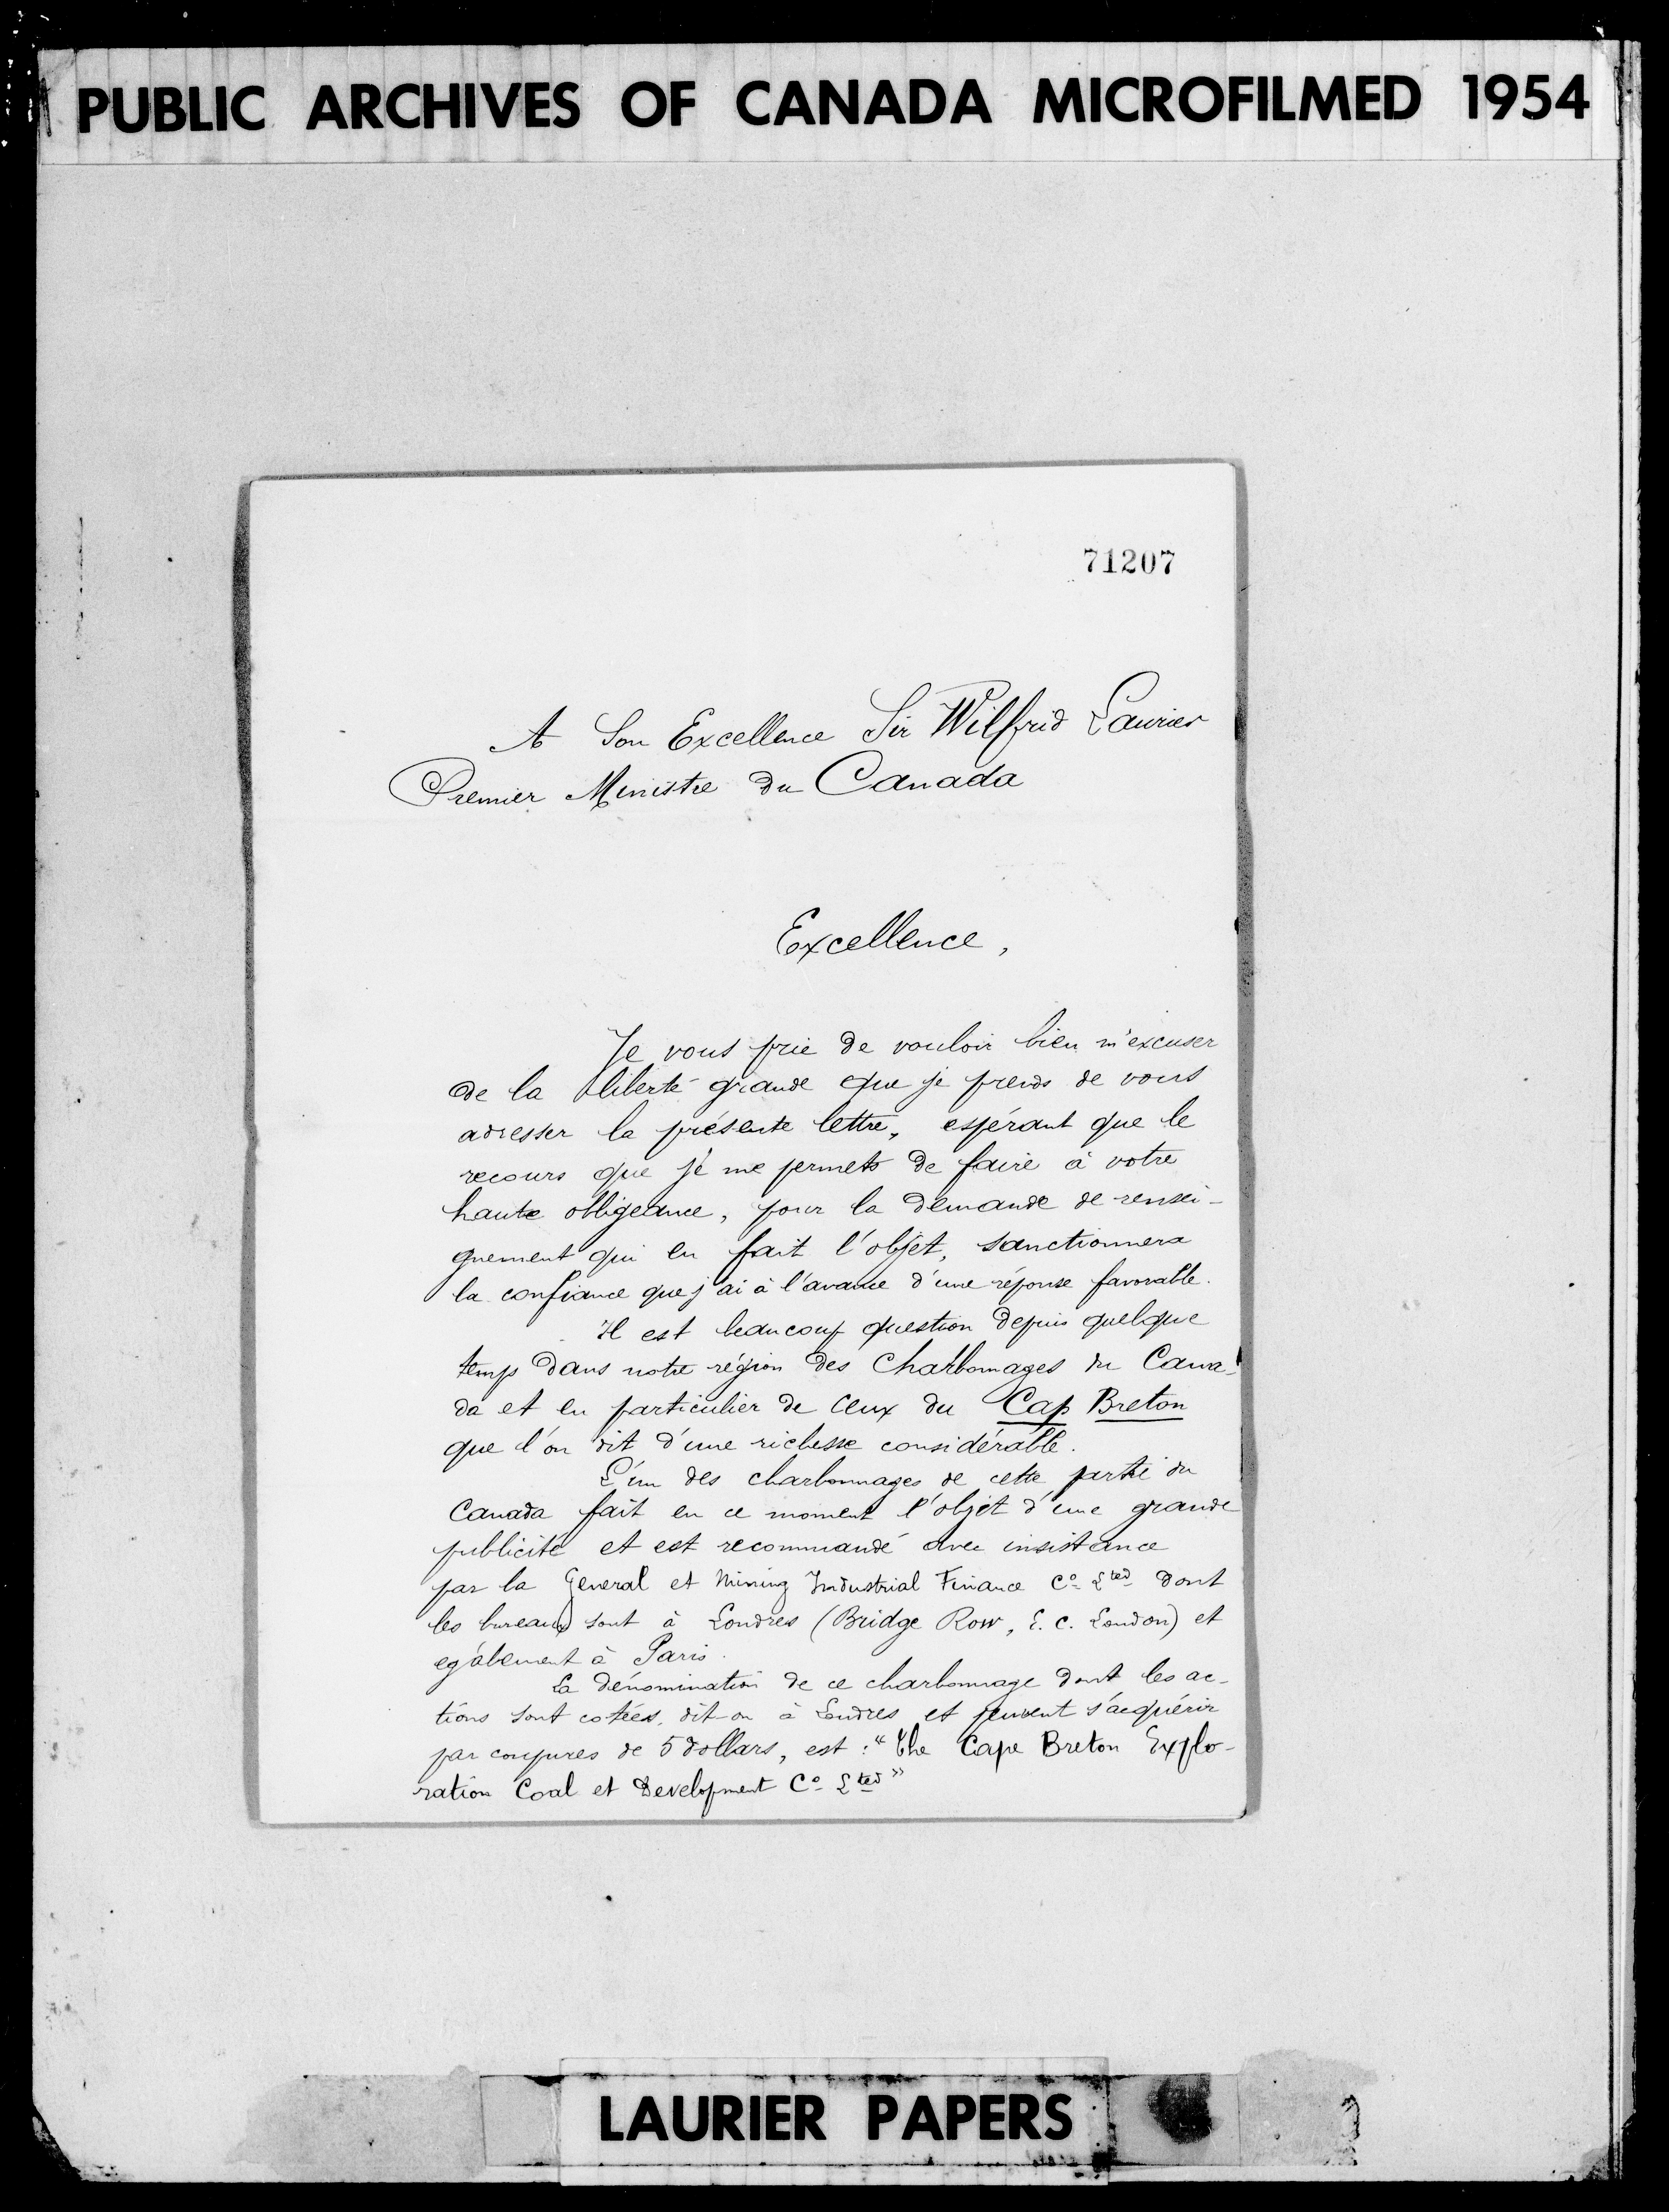 PUBLIC ARCHIVES OF CANADA MICROFILMED 1954
71207
A Son Excellence Sir Wilfrid Laurier
Premier Ministre du Canada
Excellence,
Je vous prie de vouloir bien m'excuser
de la liberté grande que je prends de vous
adresser la présente lettre, espérant que le
recours que je me permets de faire à votre
haute obligeance, pour la demande de rensei-
gnement qui en fait l'objet, sanctionnera
la confiance que j'ai à l'avance d'une réponse favorable.
Il est beaucoup question depuis quelque
temps dans notre région des Charbonnages du Cana-
da et en particulier de ceux du Cap Breton
que l'on dit d'une richesse considérable.
L'un des charbonnages de cette partie du
Canada fait en ce moment l'objet d'une grande
publicité et est recommandé avec insistance
par la General et Mining Industrial Finance Co Lted dont
les bureaux sont à Londres (Bridge Row, E. C. London) et
également à Paris.
La dénomination de ce charbonnage dont les ac-
tions sont cotées, dit-on à Londres et peuvent s'acquérir
par coupures de 5 dollars, est : "The Cape Breton Explo-
ration Coal et Development Co Lted"
LAURIER PAPERS